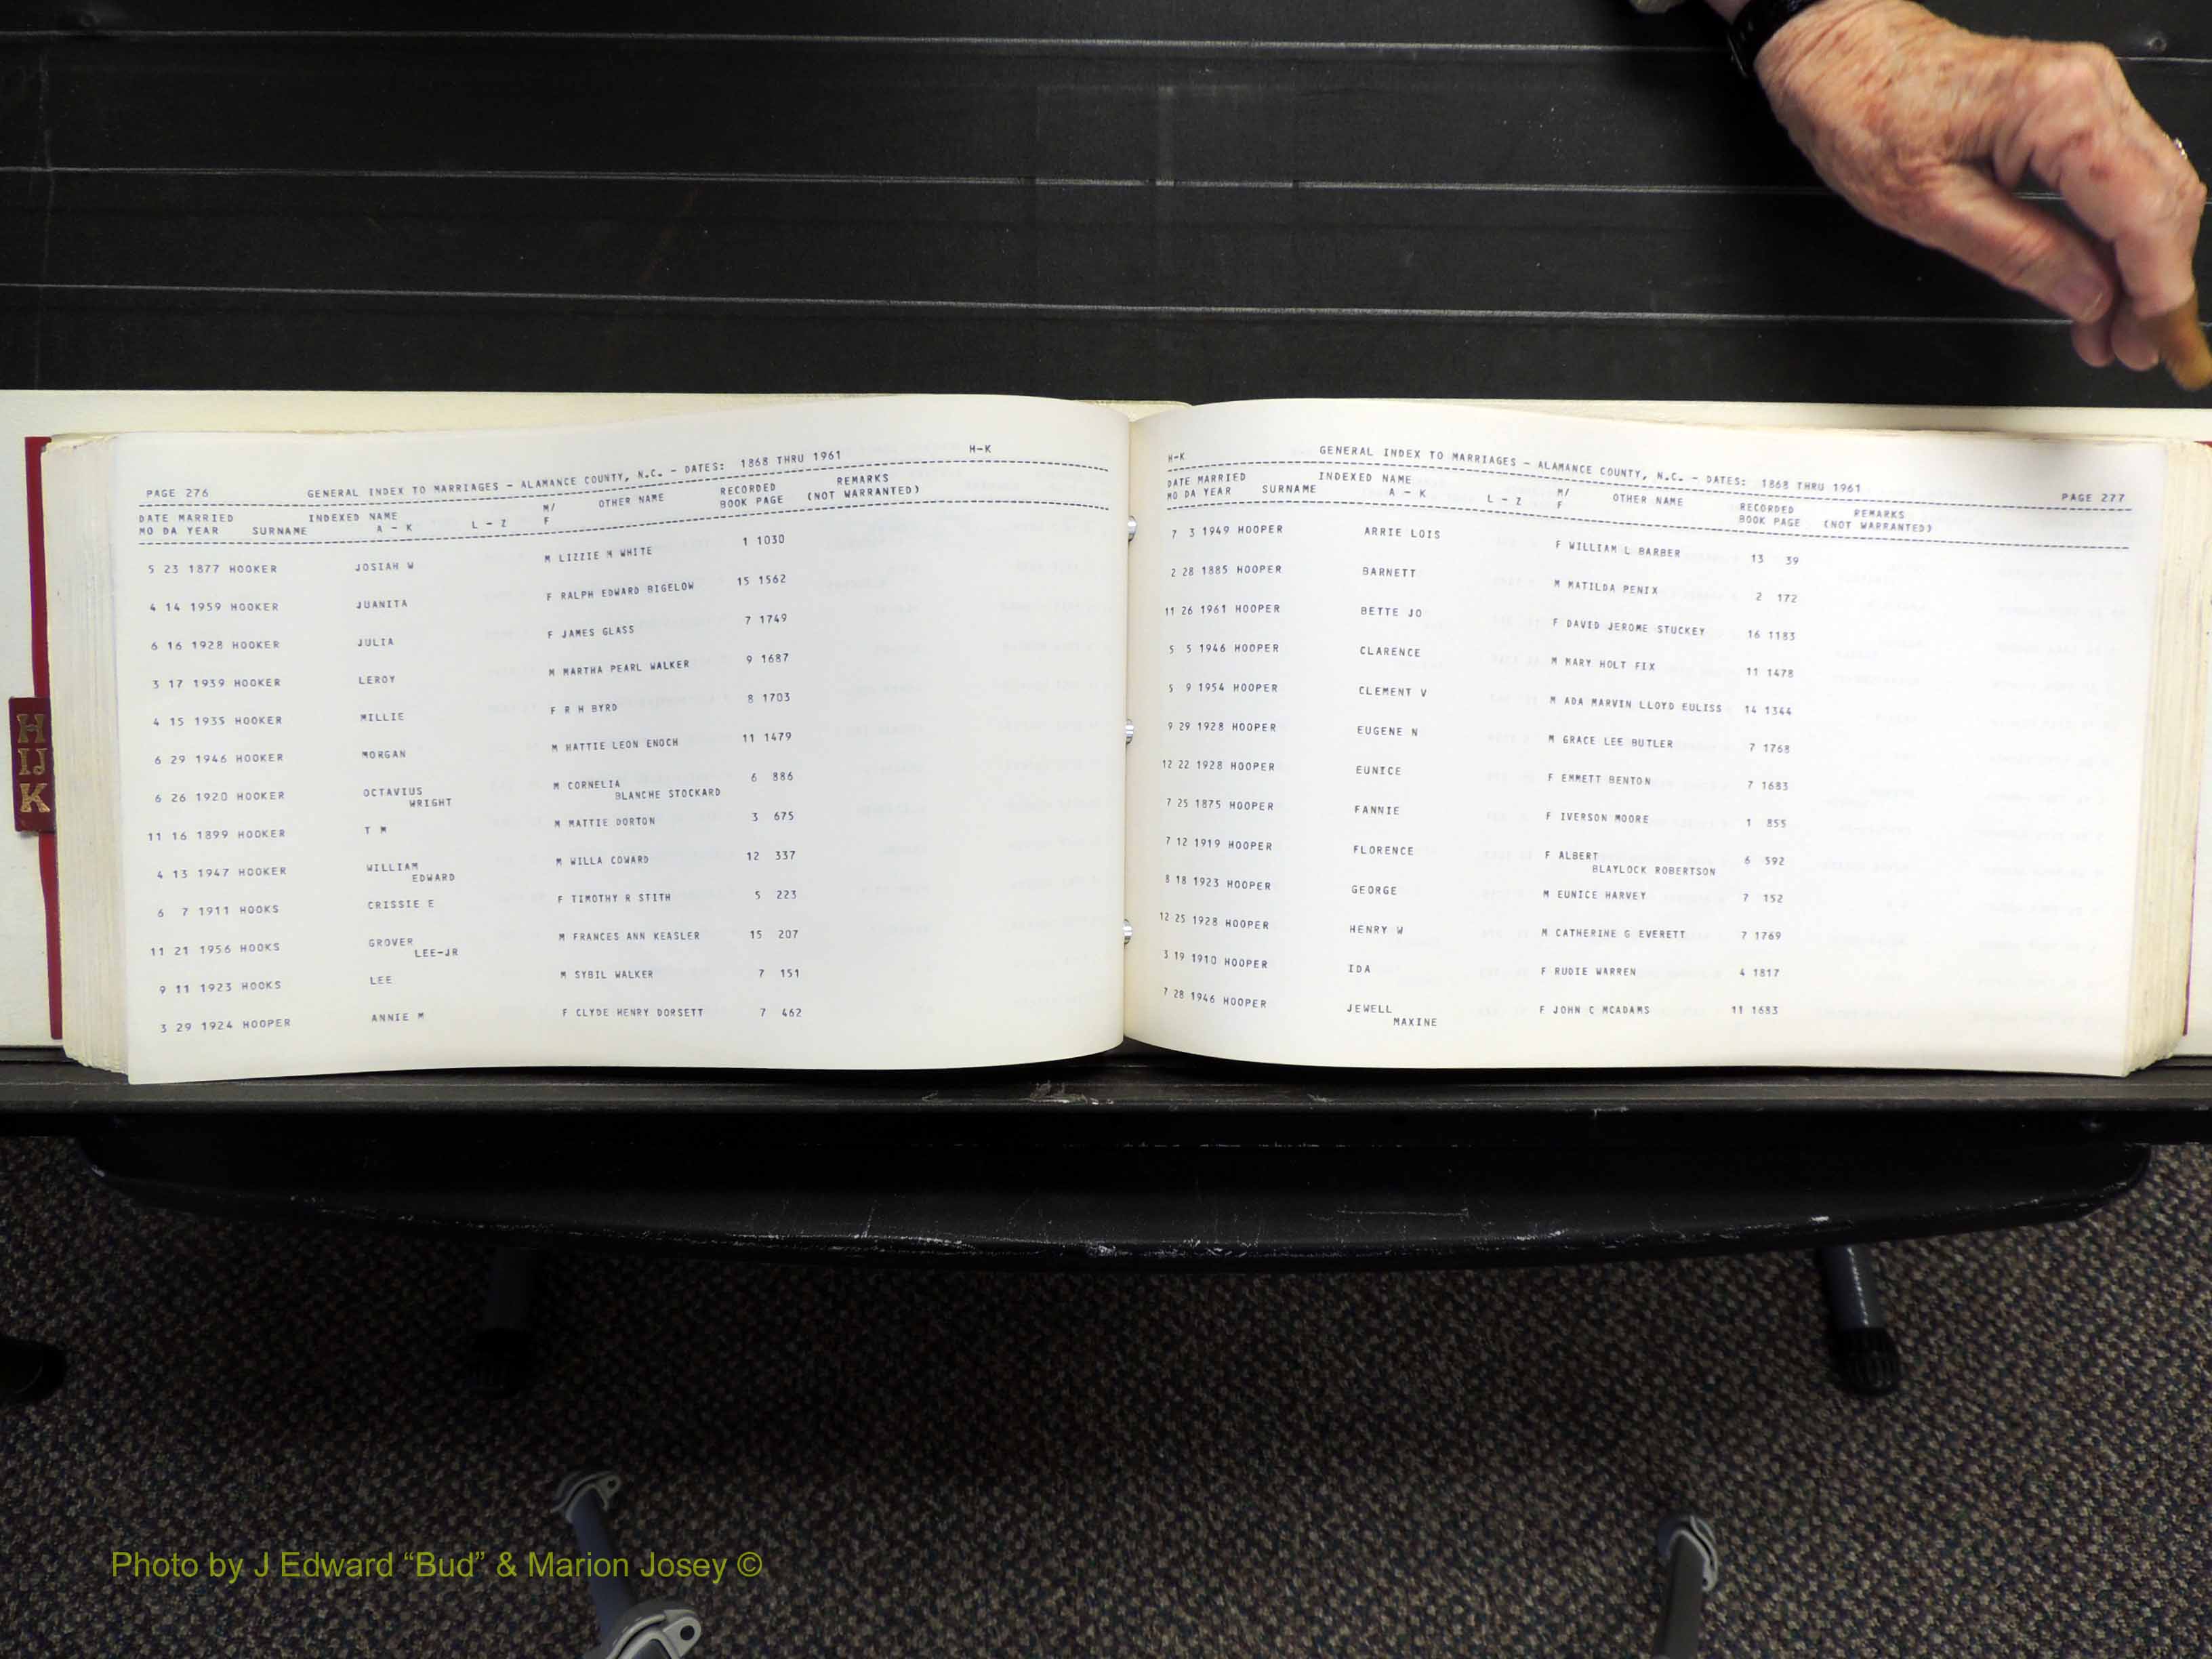 PAGE 276 GENERAL INDEX TO MARRIAGES - ALAMANCE COUNTY, N.C. - DATES: 1868 THRU 1961 H-K
DATE MARRIED INDEXED NAME M/ OTHER NAME RECORDED REMARKS
MO DA YEAR SURNAME A - K L - Z F BOOK PAGE (NOT WARRANTED)
5 23 1877 HOOKER JOSIAH W M LIZZIE M WHITE 1 1030
4 14 1959 HOOKER JUANITA F RALPH EDWARD BIGELOW 15 1562
6 16 1928 HOOKER JULIA F JAMES GLASS 7 1749
3 17 1939 HOOKER LEROY M MARTHA PEARL WALKER 9 1687
4 15 1935 HOOKER MILLIE F R H BYRD 8 1703
6 29 1946 HOOKER MORGAN M HATTIE LEON ENOCH 11 1479
6 26 1920 HOOKER OCTAVIUS M CORNELIA 6 886
WRIGHT BLANCHE STOCKARD
11 16 1899 HOOKER T M M MATTIE DORTON 3 675
4 13 1947 HOOKER WILLIAM M WILLA COWARD 12 337
EDWARD
6 7 1911 HOOKS CRISSIE E F TIMOTHY R STITH 5 223
11 21 1956 HOOKS GROVER M FRANCES ANN KEASLER 15 207
LEE-JR
9 11 1923 HOOKS LEE M SYBIL WALKER 7 151
3 29 1924 HOOPER ANNIE M F CLYDE HENRY DORSETT 7 462
H-K GENERAL INDEX TO MARRIAGES - ALAMANCE COUNTY, N.C. - DATES: 1868 THRU 1961 PAGE 277
DATE MARRIED INDEXED NAME M/ OTHER NAME RECORDED REMARKS
MO DA YEAR SURNAME A - K L - Z F BOOK PAGE (NOT WARRANTED)
7 3 1949 HOOPER ARRIE LOIS F WILLIAM L BARBER 13 39
2 28 1885 HOOPER BARNETT M MATILDA PENIX 2 172
11 26 1961 HOOPER BETTE JO F DAVID JEROME STUCKEY 16 1183
5 5 1946 HOOPER CLARENCE M MARY HOLT FIX 11 1478
5 9 1954 HOOPER CLEMENT V M ADA MARVIN LLOYD EULISS 14 1344
9 29 1928 HOOPER EUGENE N M GRACE LEE BUTLER 7 1768
12 22 1928 HOOPER EUNICE F EMMETT BENTON 7 1683
7 25 1875 HOOPER FANNIE F IVERSON MOORE 1 855
7 12 1919 HOOPER FLORENCE F ALBERT 6 592
BLAYLOCK ROBERTSON
8 18 1923 HOOPER GEORGE M EUNICE HARVEY 7 152
12 25 1928 HOOPER HENRY W M CATHERINE G EVERETT 7 1769
3 19 1910 HOOPER IDA F RUDIE WARREN 4 1817
7 28 1946 HOOPER JEWELL F JOHN C MCADAMS 11 1683
MAXINE
H
IJ
K
Photo by J Edward “Bud” & Marion Josey ©